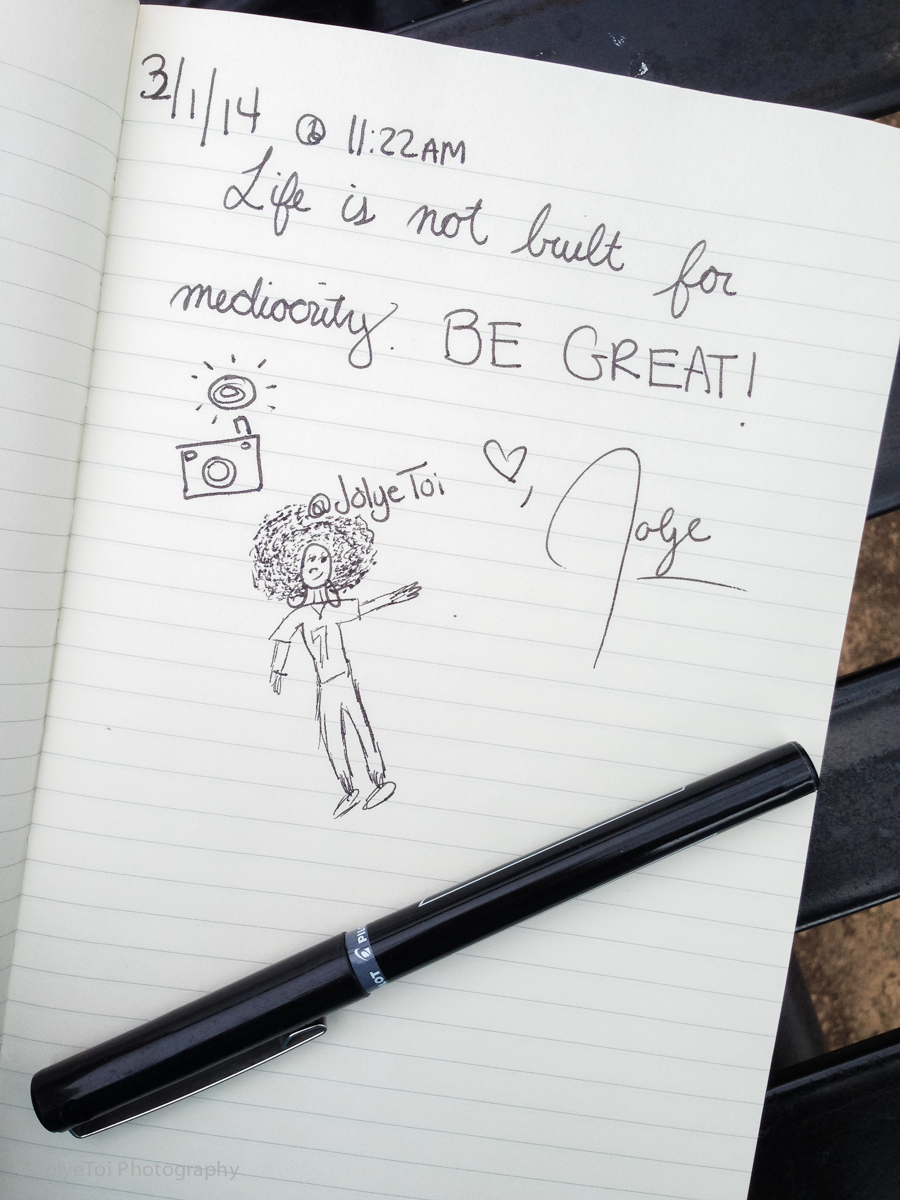 3/1/14 @ 11:22AM
Life is not built for
mediocrity. BE GREAT!
@JolyeToi
Jolye
7
PILOT
yeToi Photography